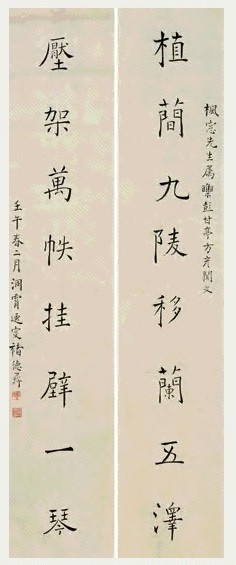 楓窓先生属彭甘亭方彦聞文
植蕳九陵移蘭五澤
壓架萬帙挂壁一琴
壬午春二月洞霄逸叟褚德彝